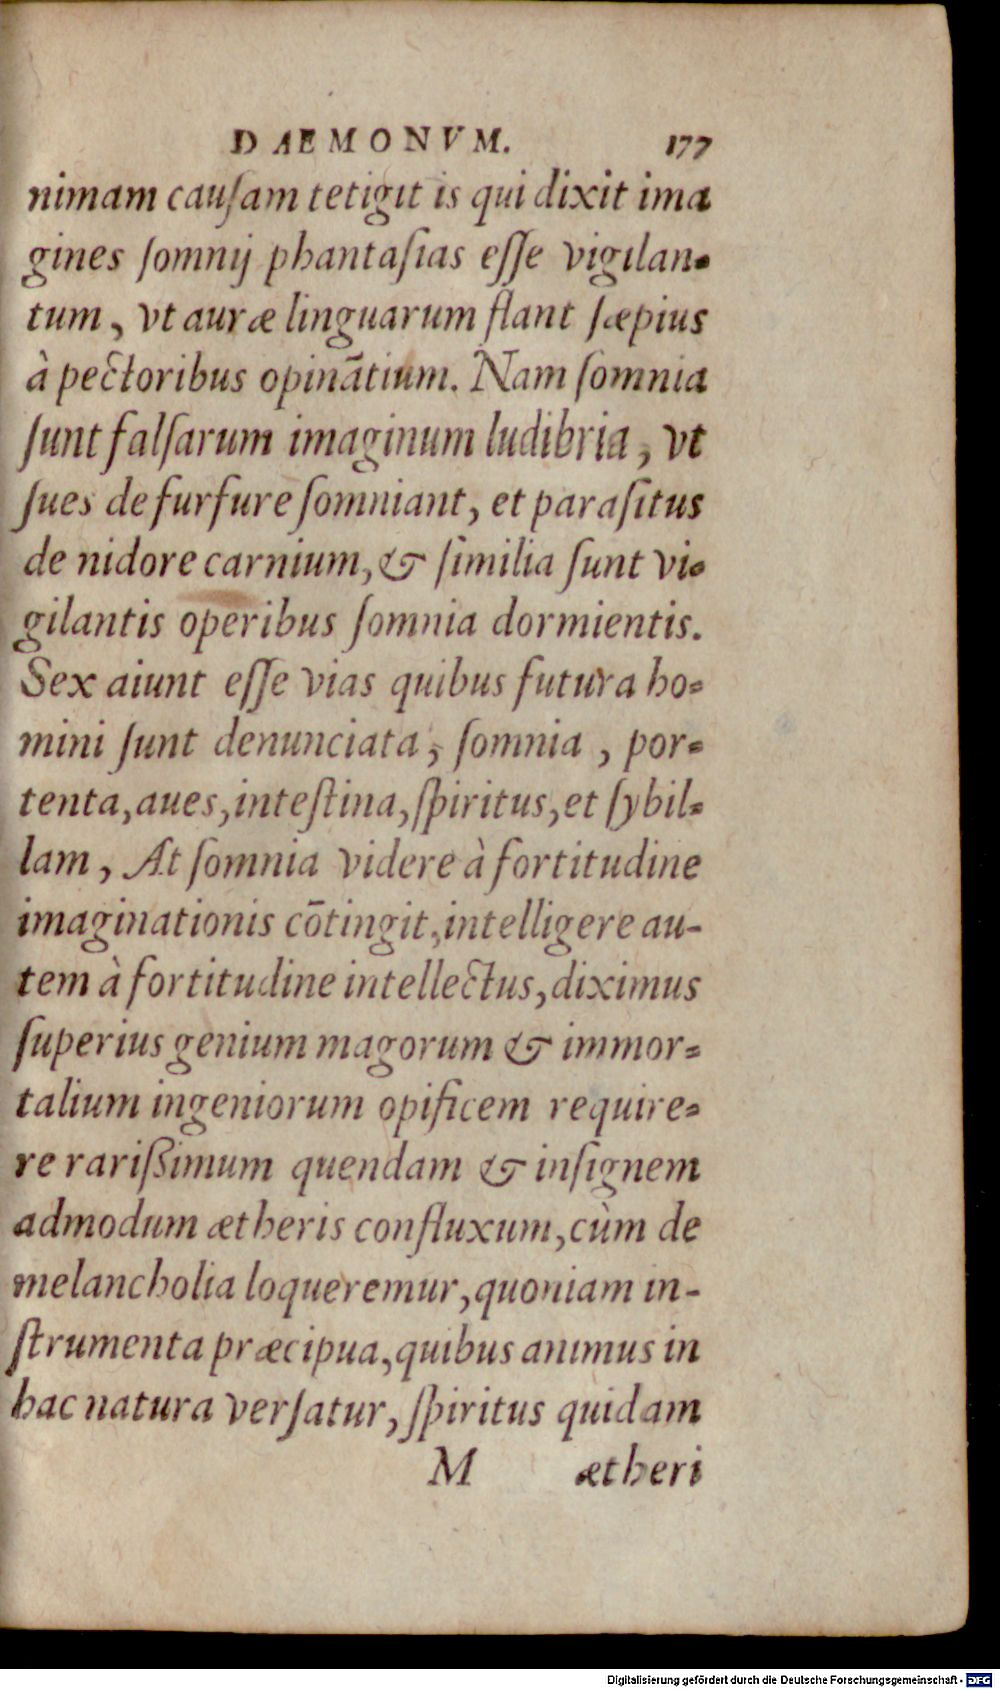 DAEMONVM. 177
nimam cauſam tetigit is qui dixit ima
gines ſomnij phantaſias eſſe vigilan-
tum, vt auræ linguarum flant ſæpius
à pectoribus opinātium. Nam ſomnia
ſunt falſarum imaginum ludibria, vt
ſues de furfure ſomniant, et paraſitus
de nidore carnium, & ſimilia ſunt vi-
gilantis operibus ſomnia dormientis.
Sex aiunt eſſe vias quibus futura ho-
mini ſunt denunciata, ſomnia, por-
tenta, aues, inteſtina, ſpiritus, et ſybil-
lam, At ſomnia videre à fortitudine
imaginationis cōtingit, intelligere au-
tem à fortitudine intellectus, diximus
ſuperius genium magorum & immor-
talium ingeniorum opificem require-
re rariſſimum quendam & inſignem
admodum ætheris confluxum, cùm de
melancholia loqueremur, quoniam in-
ſtrumenta præcipua, quibus animus in
hac natura verſatur, ſpiritus quidam
M ætheri
Digitalisierung gefördert durch die Deutsche Forschungsgemeinschaft - DFG